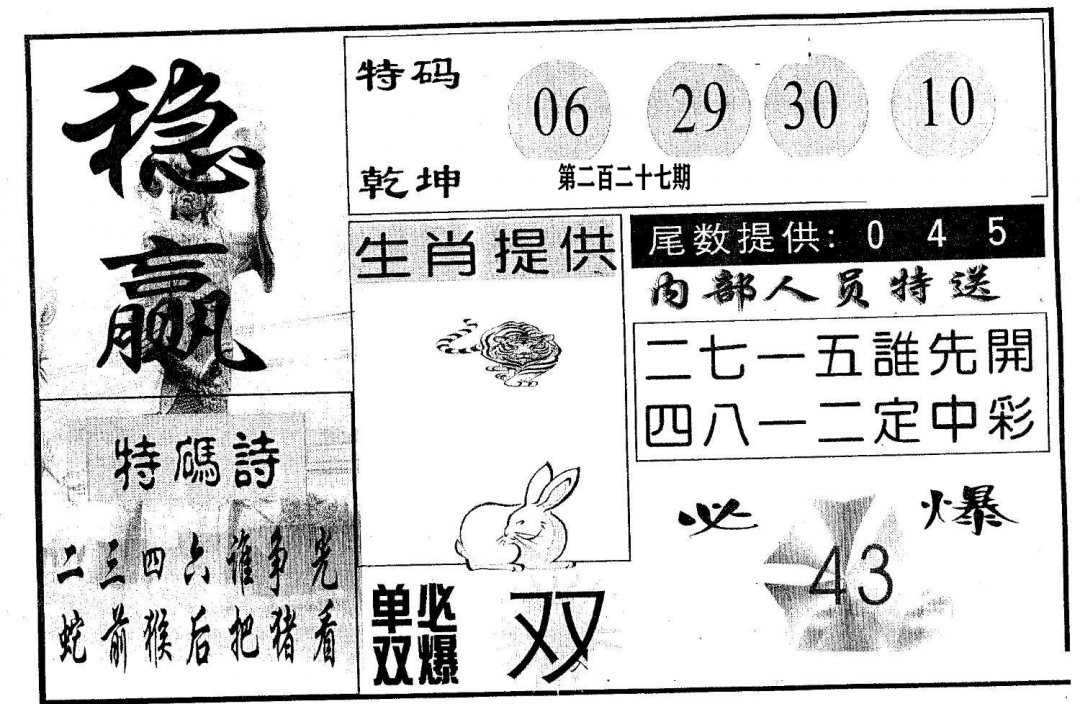 稳
赢
特码 06 29 30 10
乾坤 第二百二十七期
生肖提供
尾数提供: 0 4 5
内部人员特送
二七一五誰先開
四八一二定中彩
特碼詩
二三四六谁争光
蛇前猴后把猪看
必爆
43
单双
必爆
双